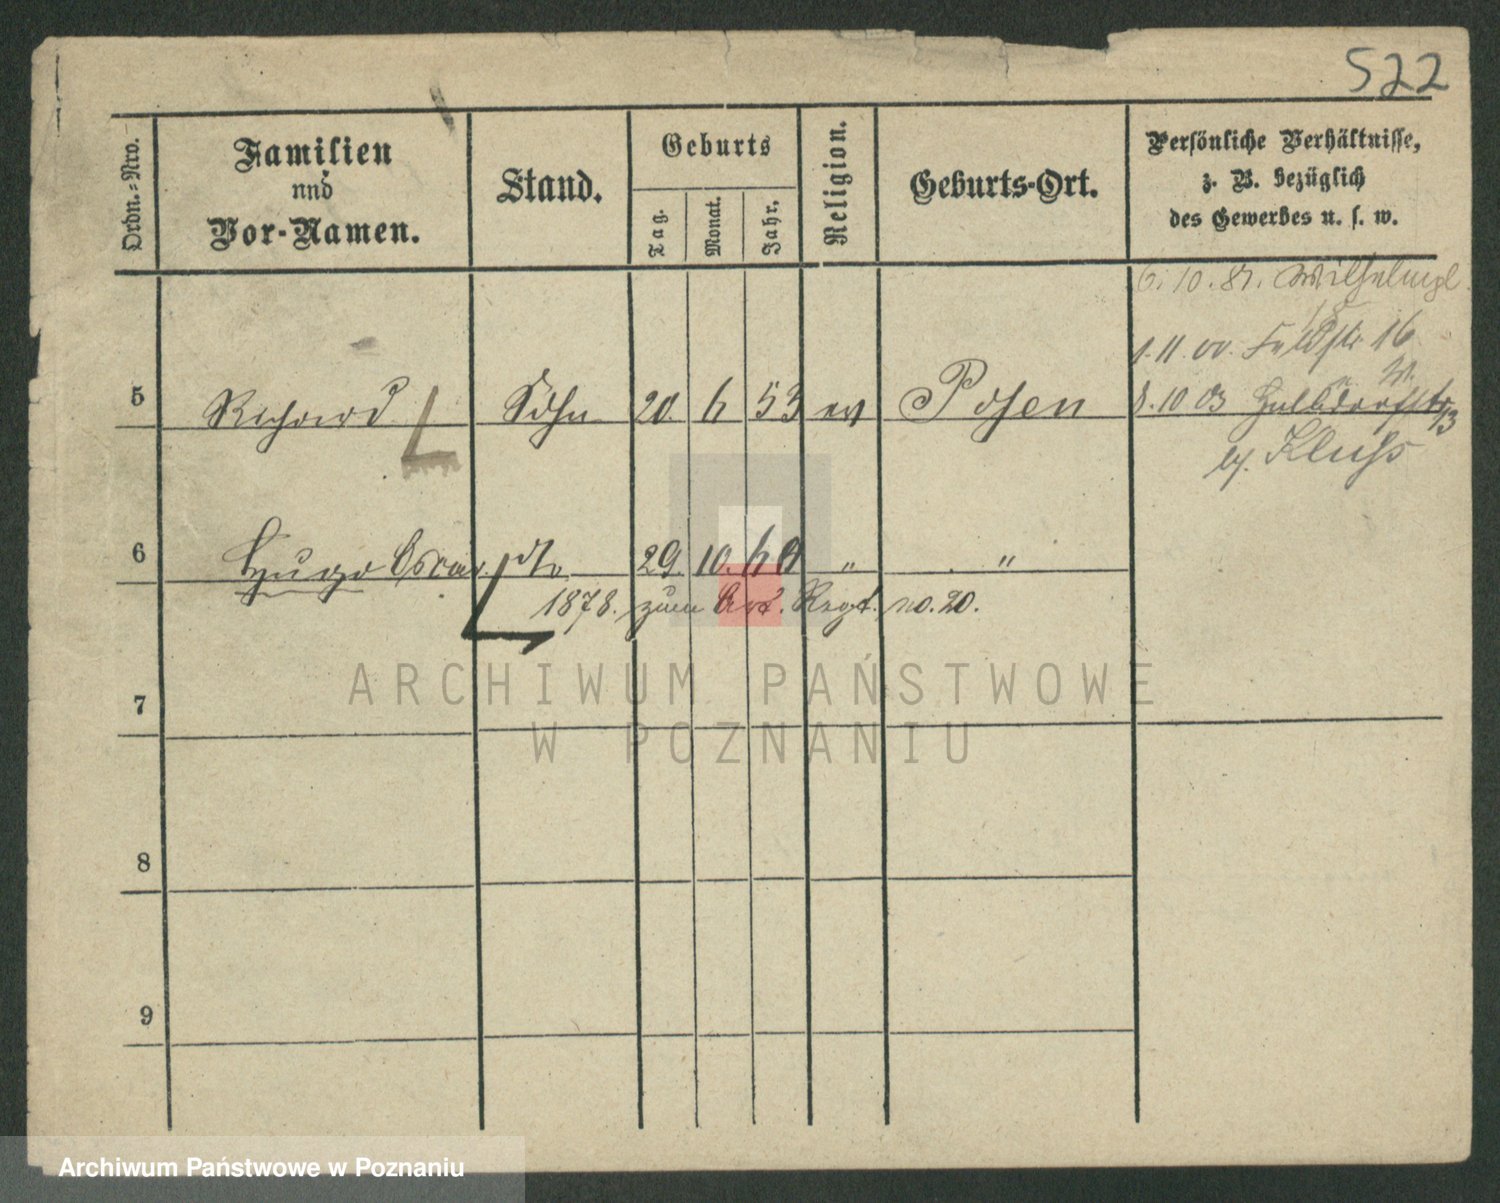 522
Ordn.-Nro.
Familien
und
Vor-Namen.
Stand.
Geburts
Tag.
Monat.
Jahr.
Religion.
Geburts-Ort.
Persönliche Verhältnisse,
z. B. bezüglich
des Gewerbes u. s. w.
6. 10. 81. Wilhelmpl.
18
1. 11. 00. Feldstr. 16
5 Richard Sohn 20. 6 53 ev Posen 8. 10 03
by. Kluhs
6 Hugo Oscar dto 29. 10. 60 " "
1878. zum Art. Regt. no. 20.
ARCHIWUM PAŃSTWOWE
W POZNANIU
7
8
9
Archiwum Państwowe w Poznaniu